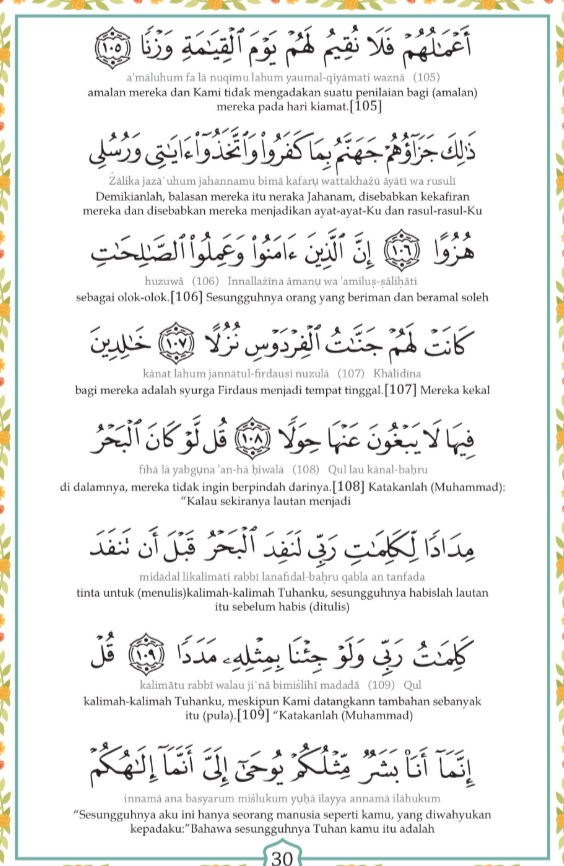 أَعْمَـٰلُهُمْ فَلَا نُقِيمُ لَهُمْ يَوْمَ ٱلْقِيَـٰمَةِ وَزْنًا ١٠٥
a'māluhum fa lā nuqīmu lahum yaumal-qiyāmati waznā (105)
amalan mereka dan Kami tidak mengadakan suatu penilaian bagi (amalan)
mereka pada hari kiamat.[105]
ذَٰلِكَ جَزَآؤُهُمْ جَهَنَّمُ بِمَا كَفَرُوا۟ وَٱتَّخَذُوٓا۟ ءَايَـٰتِى وَرُسُلِى
Żālika jazā`uhum jahannamu bimā kafarụ wattakhażū āyātī wa rusulī
Demikianlah, balasan mereka itu neraka Jahanam, disebabkan kekafiran
mereka dan disebabkan mereka menjadikan ayat-ayat-Ku dan rasul-rasul-Ku
هُزُوًا ١٠٦ إِنَّ ٱلَّذِينَ ءَامَنُوا۟ وَعَمِلُوا۟ ٱلصَّـٰلِحَـٰتِ
huzuwā (106) Innallażīna āmanụ wa 'amiluṣ-ṣāliḥāti
sebagai olok-olok.[106] Sesungguhnya orang yang beriman dan beramal soleh
كَانَتْ لَهُمْ جَنَّـٰتُ ٱلْفِرْدَوْسِ نُزُلًا ١٠٧ خَـٰلِدِينَ
kānat lahum jannātul-firdausi nuzulā (107) Khālidīna
bagi mereka adalah syurga Firdaus menjadi tempat tinggal.[107] Mereka kekal
فِيهَا لَا يَبْغُونَ عَنْهَا حِوَلًا ١٠٨ قُل لَّوْ كَانَ ٱلْبَحْرُ
fīhā lā yabgụna 'an-hā ḥiwalā (108) Qul lau kānal-baḥru
di dalamnya, mereka tidak ingin berpindah darinya.[108] Katakanlah (Muhammad):
“Kalau sekiranya lautan menjadi
مِدَادًا لِّكَلِمَـٰتِ رَبِّى لَنَفِدَ ٱلْبَحْرُ قَبْلَ أَن تَنفَدَ
midādal likalimāti rabbī lanafidal-baḥru qabla an tanfada
tinta untuk (menulis)kalimah-kalimah Tuhanku, sesungguhnya habislah lautan
itu sebelum habis (ditulis)
كَلِمَـٰتُ رَبِّى وَلَوْ جِئْنَا بِمِثْلِهِۦ مَدَدًا ١٠٩ قُلْ
kalimātu rabbī walau ji`nā bimiṡlihī madadā (109) Qul
kalimah-kalimah Tuhanku, meskipun Kami datangkann tambahan sebanyak
itu (pula).[109] “Katakanlah (Muhammad)
إِنَّمَآ أَنَا۠ بَشَرٌ مِّثْلُكُمْ يُوحَىٰٓ إِلَىَّ أَنَّمَآ إِلَـٰهُكُمْ
innamā ana basyarum miṡlukum yụḥā ilayya annamā ilāhukum
“Sesungguhnya aku ini hanya seorang manusia seperti kamu, yang diwahyukan
kepadaku:”Bahawa sesungguhnya Tuhan kamu itu adalah
30